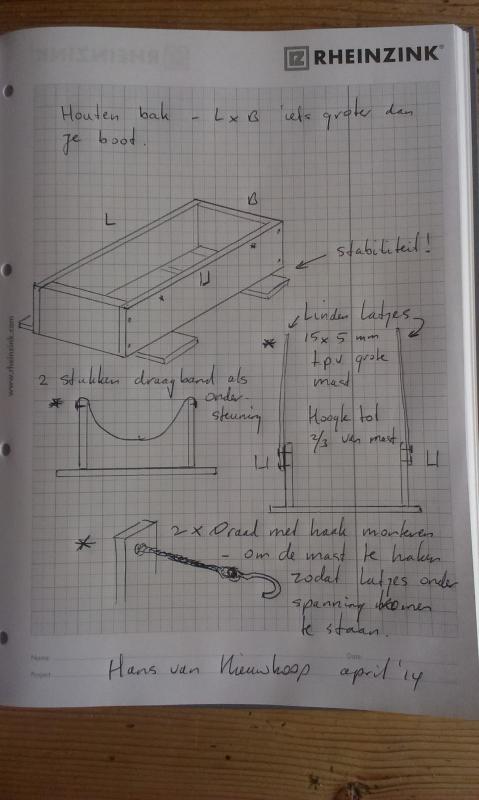 RHEINZINK®
Houten bak - L x B iets groter dan
je boot.
B
L
stabiliteit!
U
www.rheinzink.com
* Linden latjes
15 x 5 mm
t.p.v. grote
mast
2 stukken draagband als
onder-
steuning
Hoogte tot
2/3 van mast
U U
* 2 x Draad met haak monteren
- om de mast te haken
zodat latjes onder
spanning komen
te staan.
Name
Date
Project
Hans van Nieuwkoop april '14